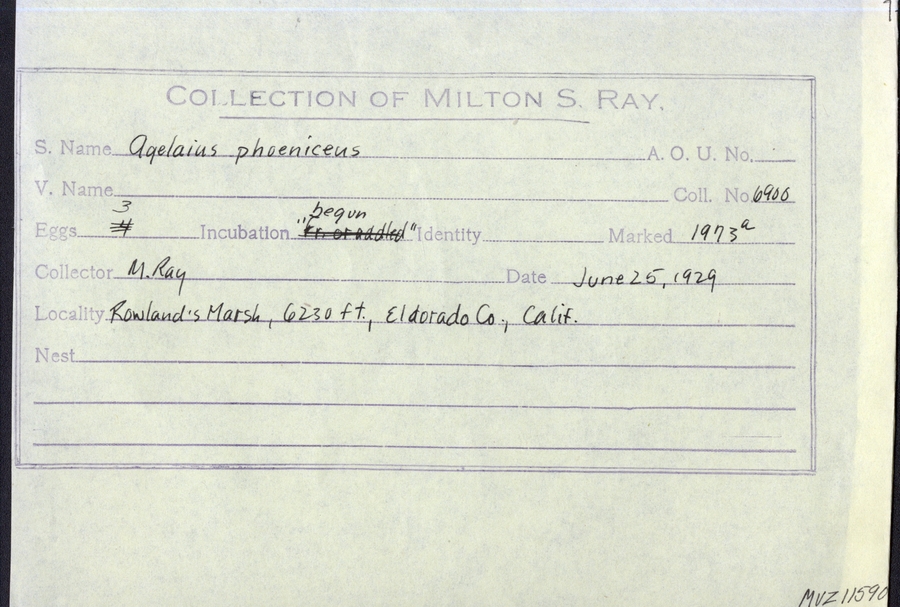 COLLECTION OF MILTON S. RAY.
S. Name Agelaius phoeniceus A. O. U. No.
V. Name Coll. No. 6900
3
begun
Eggs 4 Incubation "Fr. or addled" Identity Marked 1973a
Collector M. Ray Date June 25, 1929
Locality Rowland's Marsh, 6230 ft., Eldorado Co., Calif.
Nest
MVZ 11590